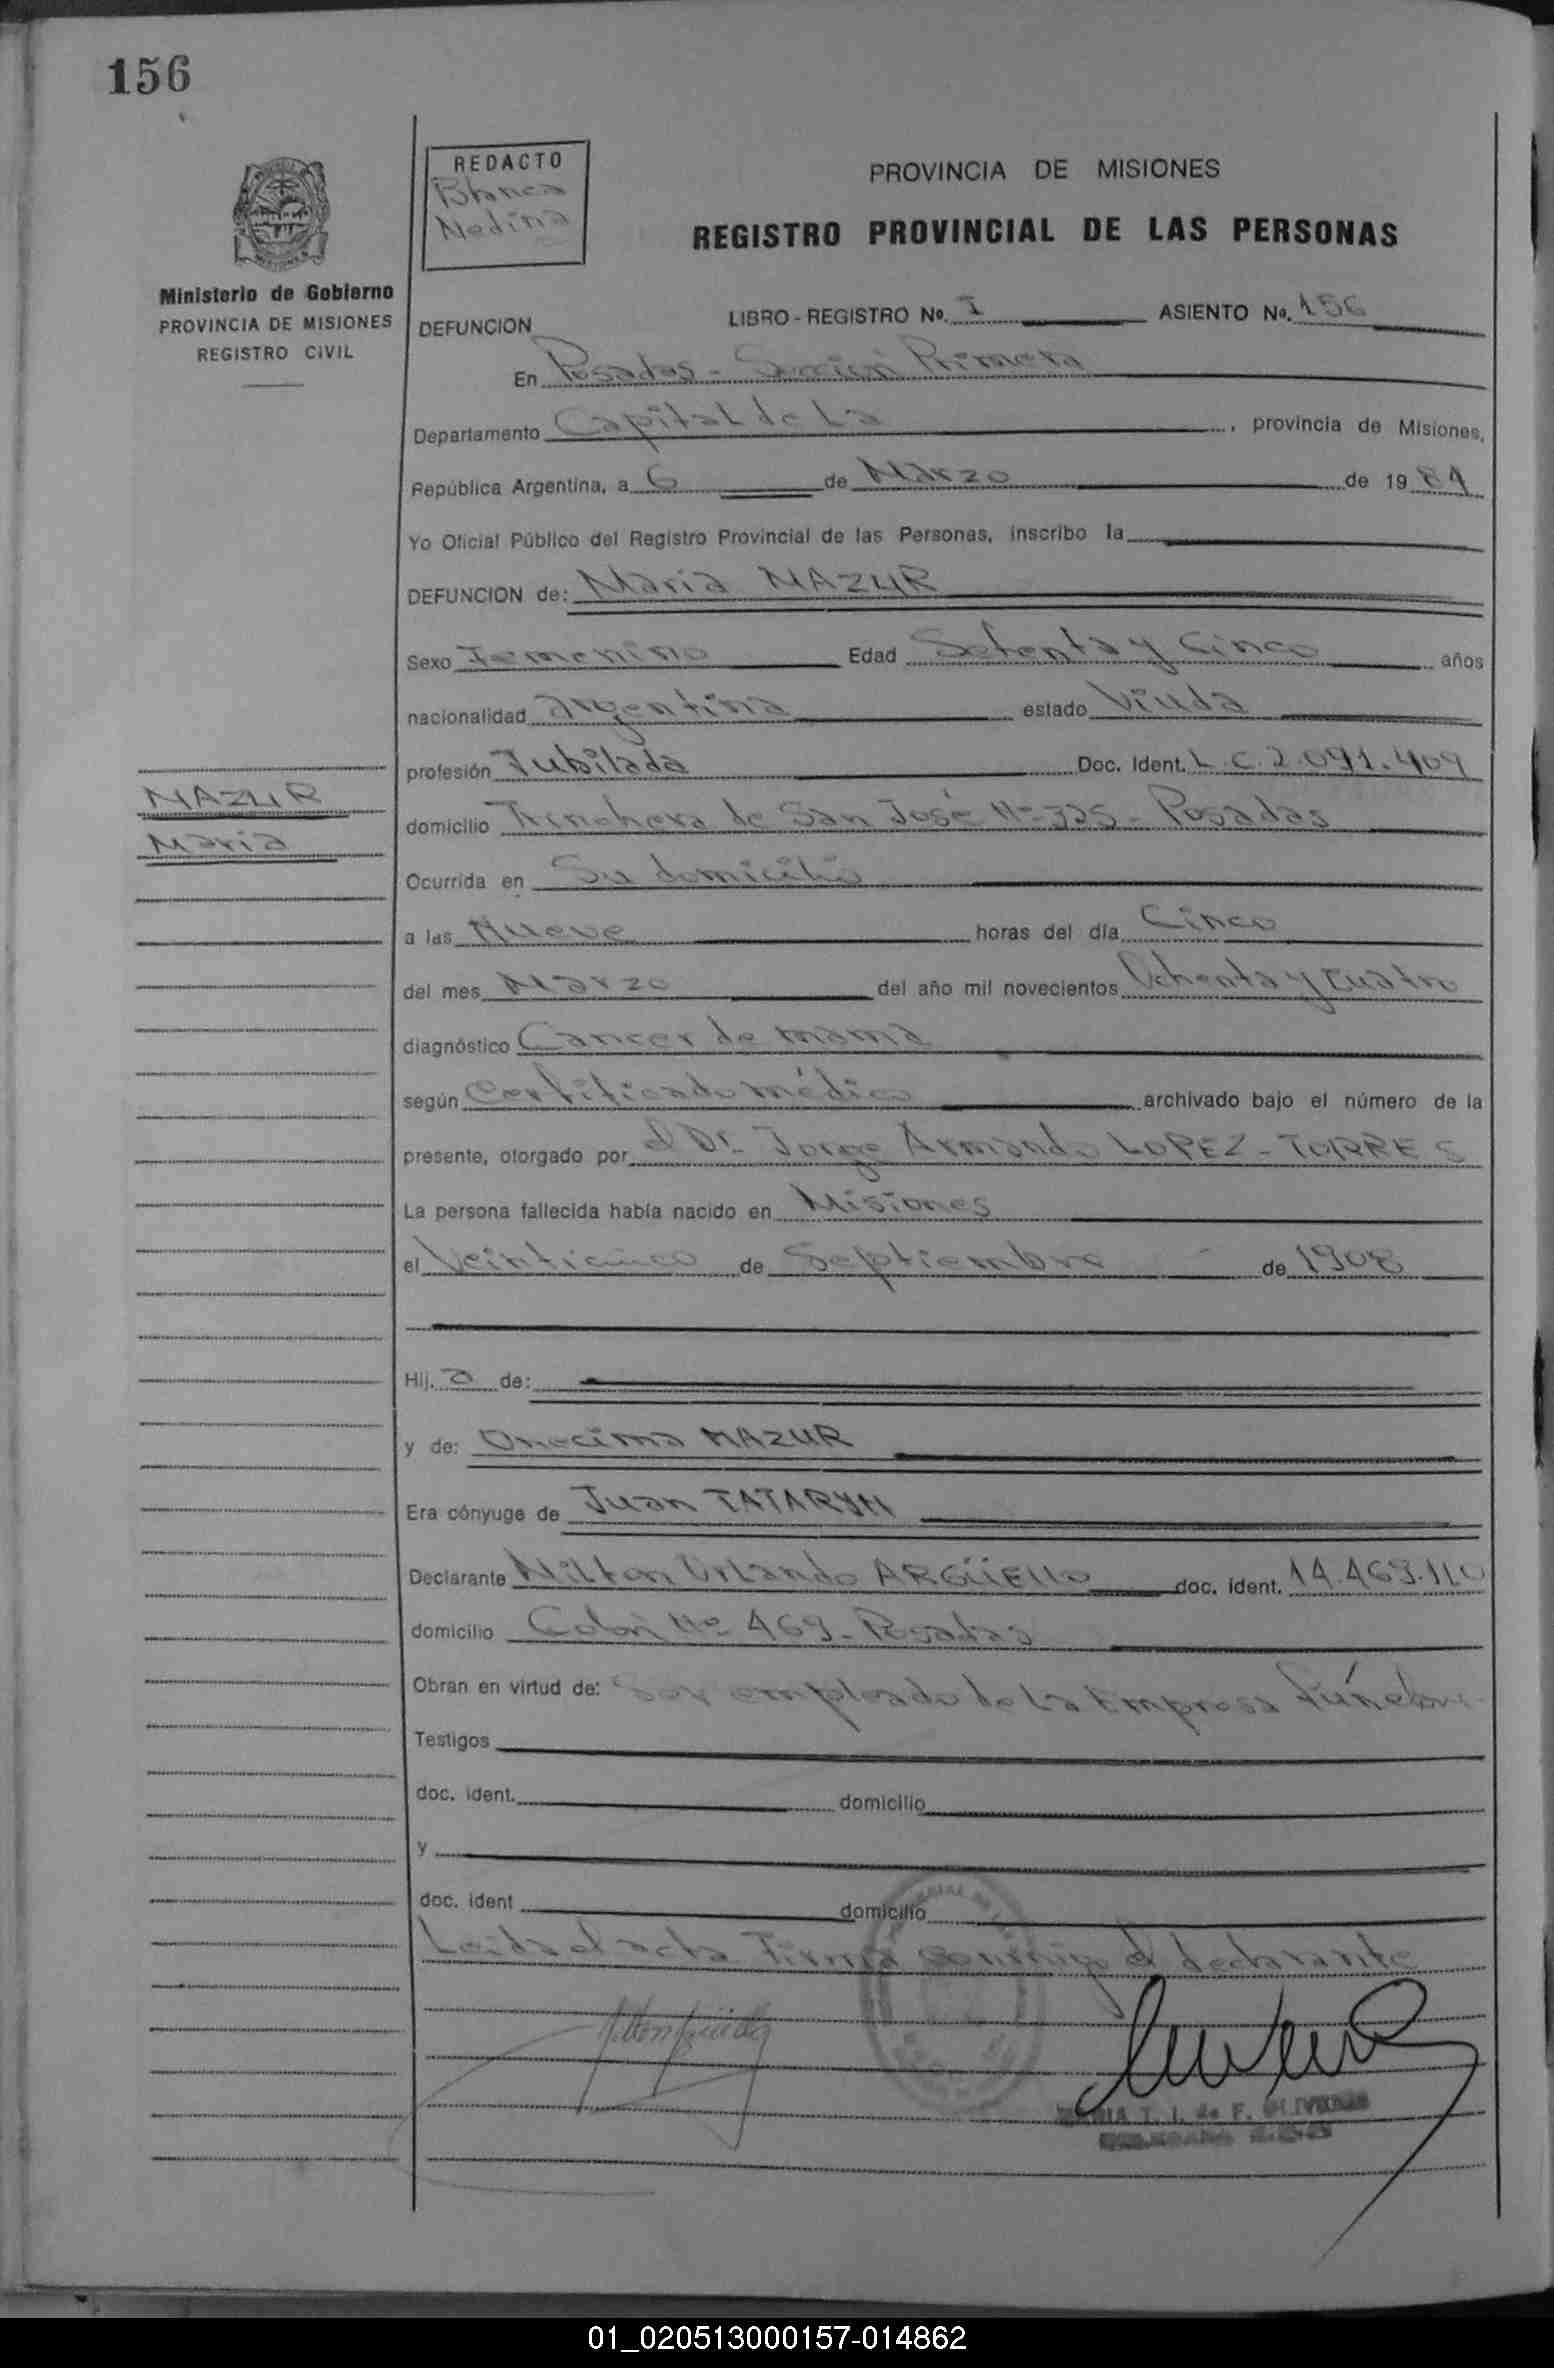 156
REDACTO
Blanca
Medina
PROVINCIA DE MISIONES
REGISTRO PROVINCIAL DE LAS PERSONAS
Ministerio de Gobierno
PROVINCIA DE MISIONES
REGISTRO CIVIL
DEFUNCION LIBRO - REGISTRO No. I ASIENTO No. 156
En Posadas - Sección Primera
Departamento Capital de La, provincia de Misiones,
República Argentina, a 6 de Marzo de 1984
Yo Oficial Público del Registro Provincial de las Personas, inscribo la
DEFUNCION de: Maria MAZUR
Sexo Femenino Edad Setenta y Cinco años
nacionalidad argentina estado Viuda
profesión Jubilada Doc. Ident. L.C. 2.091.409
MAZUR
Maria
domicilio Trinchera de San José Nº 325 - Posadas
Ocurrida en Su domicilio
a las Nueve horas del día Cinco
del mes Marzo del año mil novecientos Ochenta y Cuatro
diagnóstico Cancer de mama
según Certificado médico archivado bajo el número de la
presente, otorgado por el Dr. Jorge Armando LOPEZ - TORRES
La persona fallecida había nacido en Misiones
el Veinticinco de Septiembre de 1908
Hij. a de:
y de: Onecima MAZUR
Era cónyuge de Juan TATARYN
Declarante Milton Orlando ARGÜELLO doc. ident. 14.469.110
domicilio Colón Nº 469 - Posadas
Obran en virtud de: Ser empleado de La Empresa Fúnebre
Testigos
doc. ident. domicilio
y
doc. ident domicilio
Leida el acta Firma conmigo el declarante
MARIA T. I. de F. OLIVERA
01_020513000157-014862